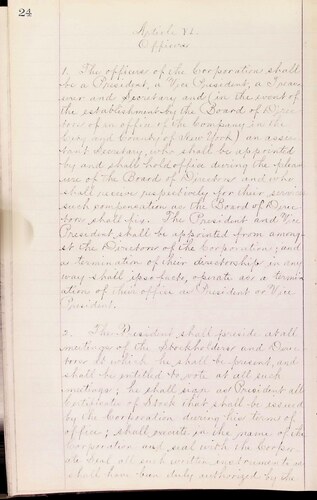 24
Article VI.
Officers
1. The officers of the Corporation shall
be a President, a Vice President, a Treas-
urer and Secretary and (in the event of
the establishment by the Board of Direc-
tors of an office of the Company in the
City and County of New York) an assis-
tant Secretary, who shall be appointed
by and shall hold office during the pleas-
ure of the Board of Directors and who
shall receive respectively for their services
such compensation as the Board of Direc-
tors shall fix. The President and Vice
President shall be appointed from among-
st the Directors of the Corporation; and
a termination of their directorship in any
way shall ipso facto, operate as a termin-
ation of their office as President or Vice
President.
2. The President shall preside at all
meetings of the Stockholders and Direc-
tors at which he shall be present, and
shall be entitled to vote at all such
meetings; he shall sign as President all
Certificates of Stock that shall be issued
by the Corporation during his term of
office; shall execute in the name of the
Corporation and seal with the Corpor-
ate Seal all such written instruments as
shall have been duly authorized by the